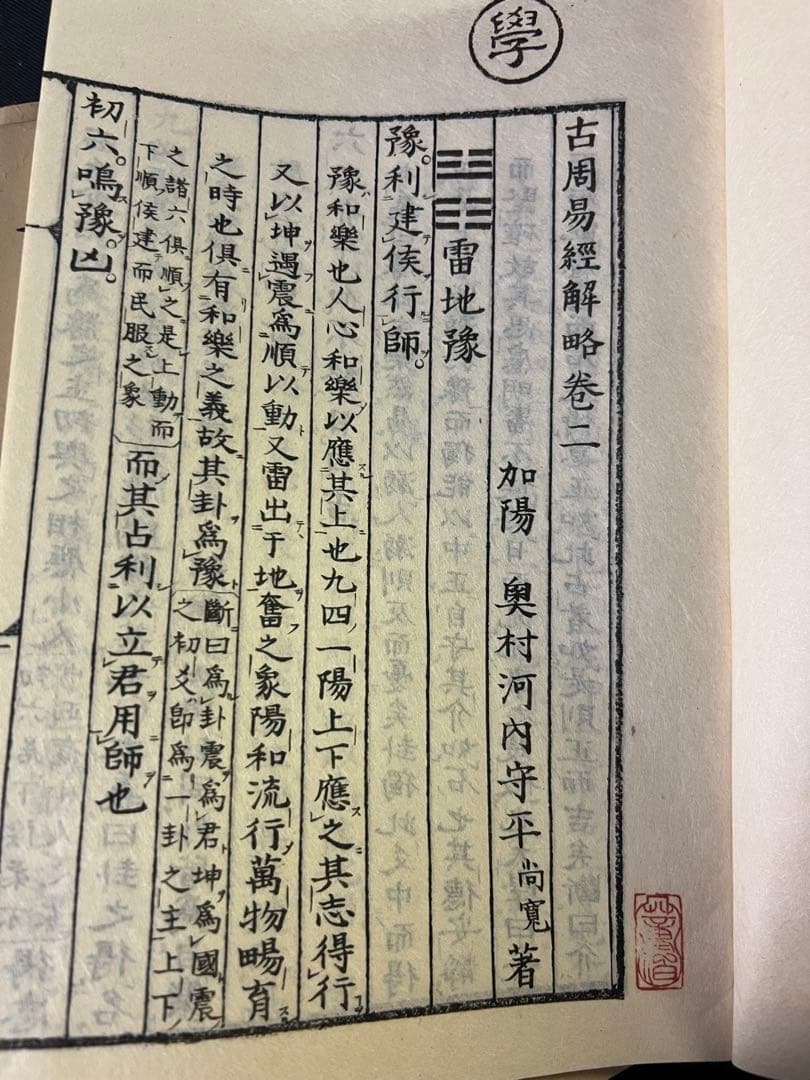 學
古周易經解略卷二
加陽 奧村河內守平尚寬著
䷏雷地豫
豫。利建侯行師。
豫和樂也人心和樂以應其上也九四一陽上下應之其志得行
又以坤遇震爲順以動又雷出于地奮之象陽和流行萬物暢育
之時也俱有和樂之義故其卦爲豫
斷曰爲卦震爲君坤爲國震
之初爻卽爲一卦之主上下
之諧六俱順之是上動而
下順侯建而民服之象
而其占利以立君用師也
初六。鳴豫。凶。